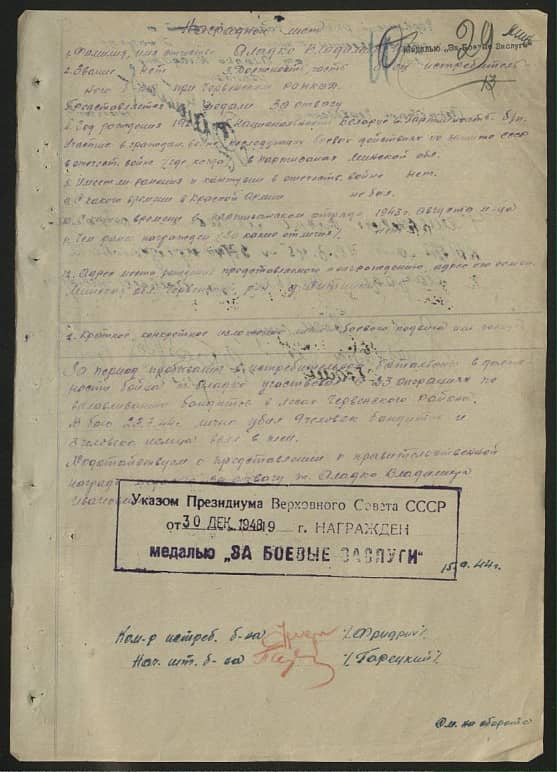 Наградной лист
29
1. Фамилия, имя, отчество Сладко Владимир
медалью „За Боевые Заслуги“
2. Звание нет 3. Должность, часть истребитель
13
при Червенском районе.
Представляется к медали За отвагу
4. Год рождения 19 5. Национальность белорус 6. Партийность б/п.
Участие в граждан. войне, последующих боевых действиях по защите СССР
и отечест. войне (где, когда) в партизанах Минской обл.
8. Имеет ли ранения и контузии в отечеств. войне нет.
9. С какого времени в Красной Армии не был.
10. С какого времени в партизанском отряде 1943 г. Августа м-ца
11. Чем ранее награжден (за какие отличия)
12. Адрес место рождения представляемого к награждению, адрес его семьи.
Минская обл. Червенский р-н д.
1. Краткое, конкретное изложение личного боевого подвига или заслуг
За период пребывания в истребительном батальоне в долж-
ности бойца т. Сладко участвовал в 33 операциях по
вылавливанию бандитов в лесах Червенского района.
В бою 23.7.44 г. лично убил 9 человек бандитов и
3 человека немцев взял в плен.
Ходатайствуем о представлении к правительственной
награде медалью за отвагу т. Сладко Владимира
Ивановича
Указом Президиума Верховного Совета СССР
от 30 ДЕК 1948 19 г. НАГРАЖДЕН
медалью „ЗА БОЕВЫЕ ЗАСЛУГИ“
15.9.44 г.
Ком-р истреб. б-на /Фридрих/.
Нач. шт. б-на /Гарецкий/.
См. на обороте